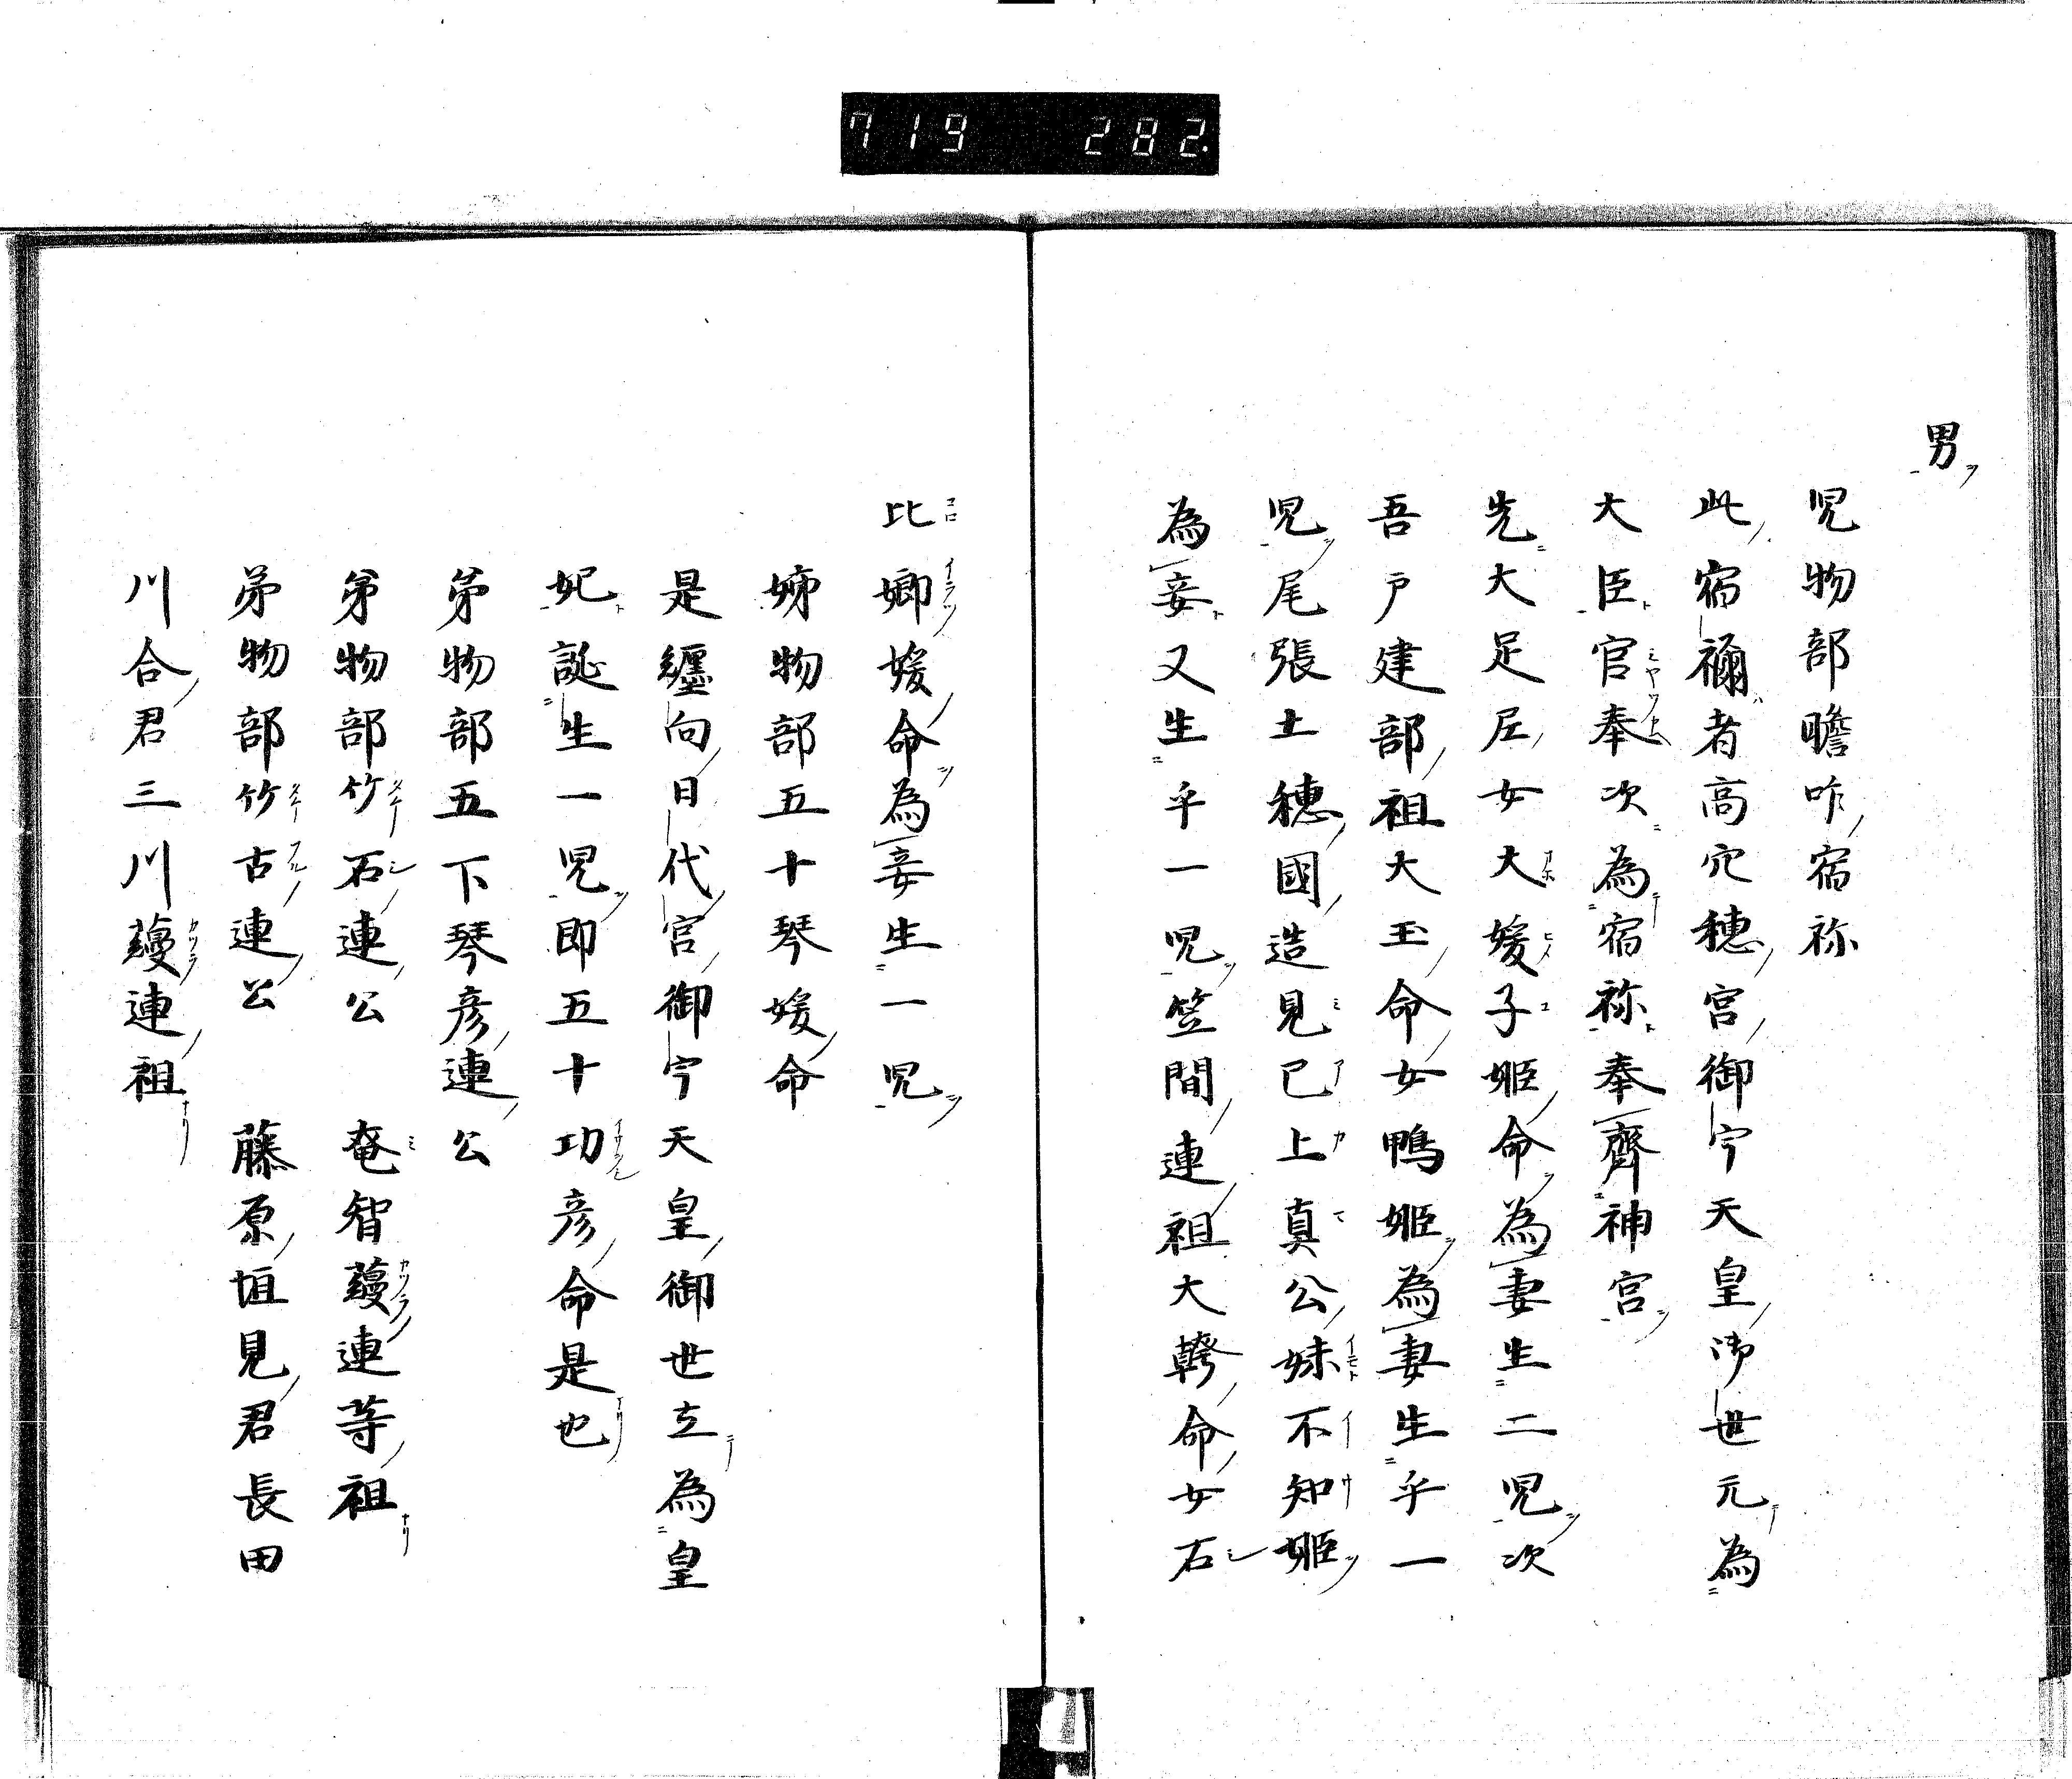 719 282.
男
児物部瞻咋宿祢
此宿禰者高穴穂宮御宁天皇御世元為
大臣官奉次為宿祢奉齊神宮
先大足尼女大媛子姫命為妻生二児次
吾戸建部祖大玉命女鴨姫為妻生乎一
児尾張土穂國造見已上真公妹不知姫
為妾又生乎一児笠間連祖大鞆命女石
比娜媛命為妾生一児
姉物部五十琴媛命
是纏向日代宮御宁天皇御世立為皇
妃誕生一児即五十功彦命是也
弟物部五下琴彦連公
弟物部竹石連公 奄智蘰連等祖
弟物部竹古連公 藤原恒見君長田
川合君三川蘰連祖